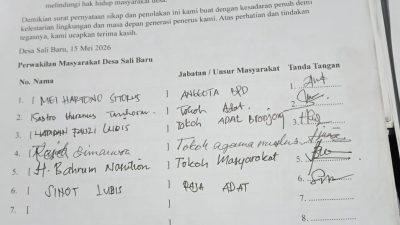 melindungi hak hidup masyarakat desa.
Demikian surat pernyataan sikap dan penolakan ini kami buat dengan kesadaran penuh demi
kelestarian lingkungan dan masa depan generasi penerus kami. Atas perhatian dan tindakan
tegasnya, kami ucapkan terima kasih.
Desa Sali Baru, 15 Mei 2026
Perwakilan Masyarakat Desa Sali Baru
No. Nama Jabatan / Unsur Masyarakat Tanda Tangan
1. | MEI HARTONO | ANGGOTA BPD 1.
2. Sastro | Tokoh Adat. 2.
3. | FAUZI LUBIS | Tokoh ADAT 3.
4. | Tokoh agama
5. | H. Bahrum Nasution | Tokoh Masyarakat 5.
6. | SINOT LUBIS | RAJA ADAT 6.
7. | 7.
8.